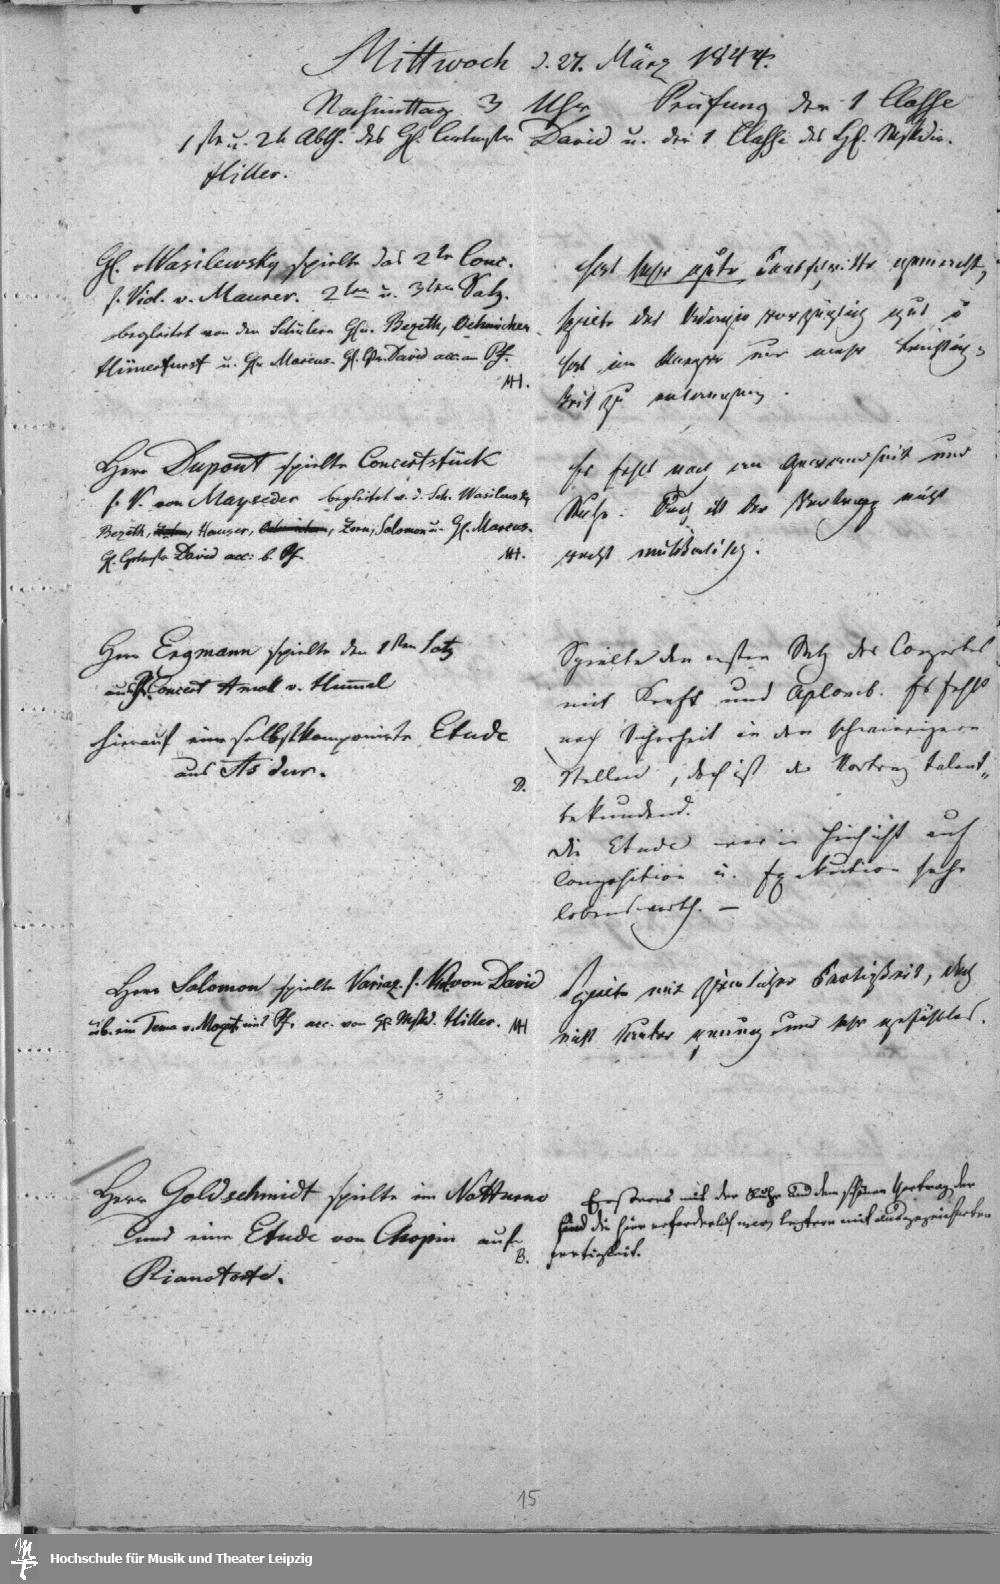 Mittwoch d. 27. März 1844.
Nachmittag 3 Uhr Prüfung der 1 Classe
1ste u. 2te Abth. des H. Concertmstr David u. der 1 Classe des H. Mskdir.
Hiller.
H. v Wasilewsky spielte das 2te Conc.
f. Viol. v. Maurer. 2ten u. 3ten Satz.
begleitet von den Schülern Hrn. Bezeth, Oehmichen
Hünerfürst u. Hr. Marcus. H. David acc. am Pf.
MH.
Hat sehr gute Fortschritte gemacht,
spielte das Adagio vorzüglich gut u
hat im Ganzen nur mehr
keit zu
Herr Dupont spielte Concertstück
f. V. von Mayseder begleitet v. d. Sch. Wasilewsky
Bezeth, Hauser, Zorn, Salomon u. H. Marcus.
H. David acc: b. Pf.
MH.
Es fehlt noch an Gewandheit und
Ruhe. Auch ist der Vortrag nicht
recht musikalisch.
Herr Ergmann spielte den 1sten Satz
aus Pf. Concert Amoll v. Hummel
hierauf eine selbstkomponirte Etude
aus As dur.
D.
Spielte den ersten Satz des Conzertes
mit Kraft und Aplomb. Es fehlt
noch Sicherheit in den schwierigern
Stellen, doch ist der Vortrag talent„
bekundend.
Die Etude war in Hinsicht auf
Composition u. Exekution sehr
lobenswerth. —
Herr Salomon spielte Variaz. f. Viol von David
üb. ein Tema v. Mozart mit Pf. acc. von H. Mskd. Hiller.
MH
Spielte mit ziemlicher Fertigkeit, doch
nicht sauber genug und sehr gefühllos.
Herr Goldschmidt spielte ein Notturno
und eine Etude von Chopin auf
Pianoforte.
B.
Ersteres mit der Ruhe und dem schönen Vortrag der
sind die hier erforderlich war, letztere mit ausgezeichneter
Fertigkeit.
15
Hochschule für Musik und Theater Leipzig